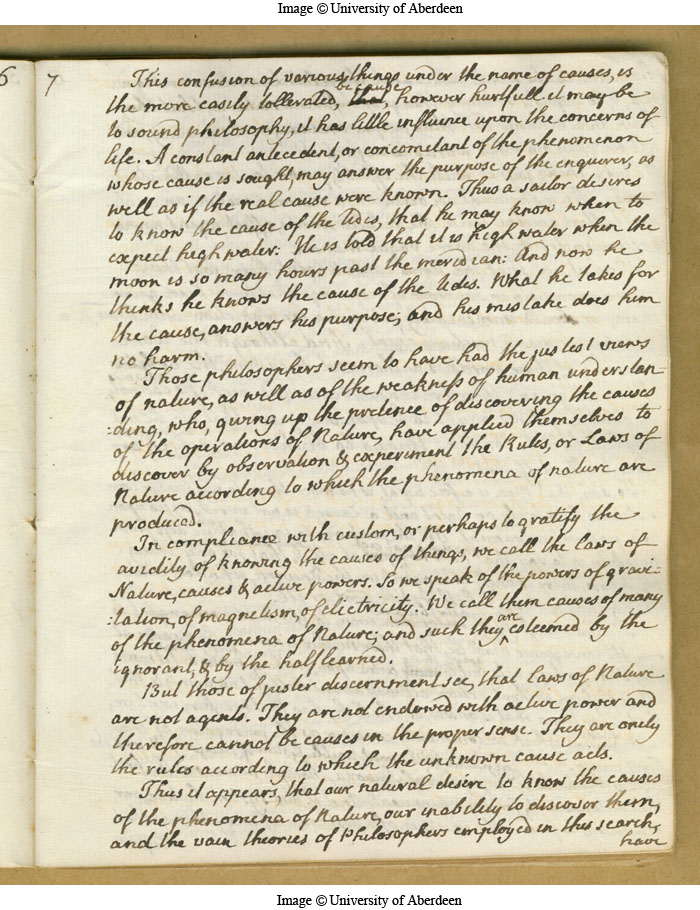 Image © University of Aberdeen
6
7
This confusion of various things under the name of causes, is
because
the more easily tollerated, that, however hurtfull it may be
to sound philosophy, it has little influence upon the concerns of
life. A constant antecedent, or concomitant of the phenomenon
whose cause is sought, may answer the purpose of the enquirer, as
well as if the real cause were known. Thus a sailor desires
to know the cause of the tides, that he may know when to
expect high water: He is told that it is high water when the
moon is so many hours past the meridian: And now he
thinks he knows the cause of the tides. What he takes for
the cause, answers his purpose; and his mistake does him
no harm.
Those philosophers seem to have had the justest views
of nature, as well as of the weakness of human understan-
:ding, who, giving up the pretence of discovering the causes
of the operations of Nature, have applied themselves to
discover by observation & experiment the Rules, or Laws of
Nature according to which the phenomena of nature are
produced.
In compliance with custom, or perhaps to gratify the
avidity of knowing the causes of things, we call the laws of
Nature, causes & active powers. So we speak of the powers of gravi-
:tation, of magnetism, of electricity. We call them causes of many
of the phenomena of Nature; and such they are esteemed by the
ignorant, & by the half learned.
But those of juster discernment see, that laws of Nature
are not agents. They are not endowed with active power and
therefore cannot be causes in the proper sense. They are onely
the rules according to which the unknown cause acts.
Thus it appears, that our natural desire to know the causes
of the phenomena of Nature, our inability to discover them,
and the vain theories of Philosophers employed in this search,
have
Image © University of Aberdeen